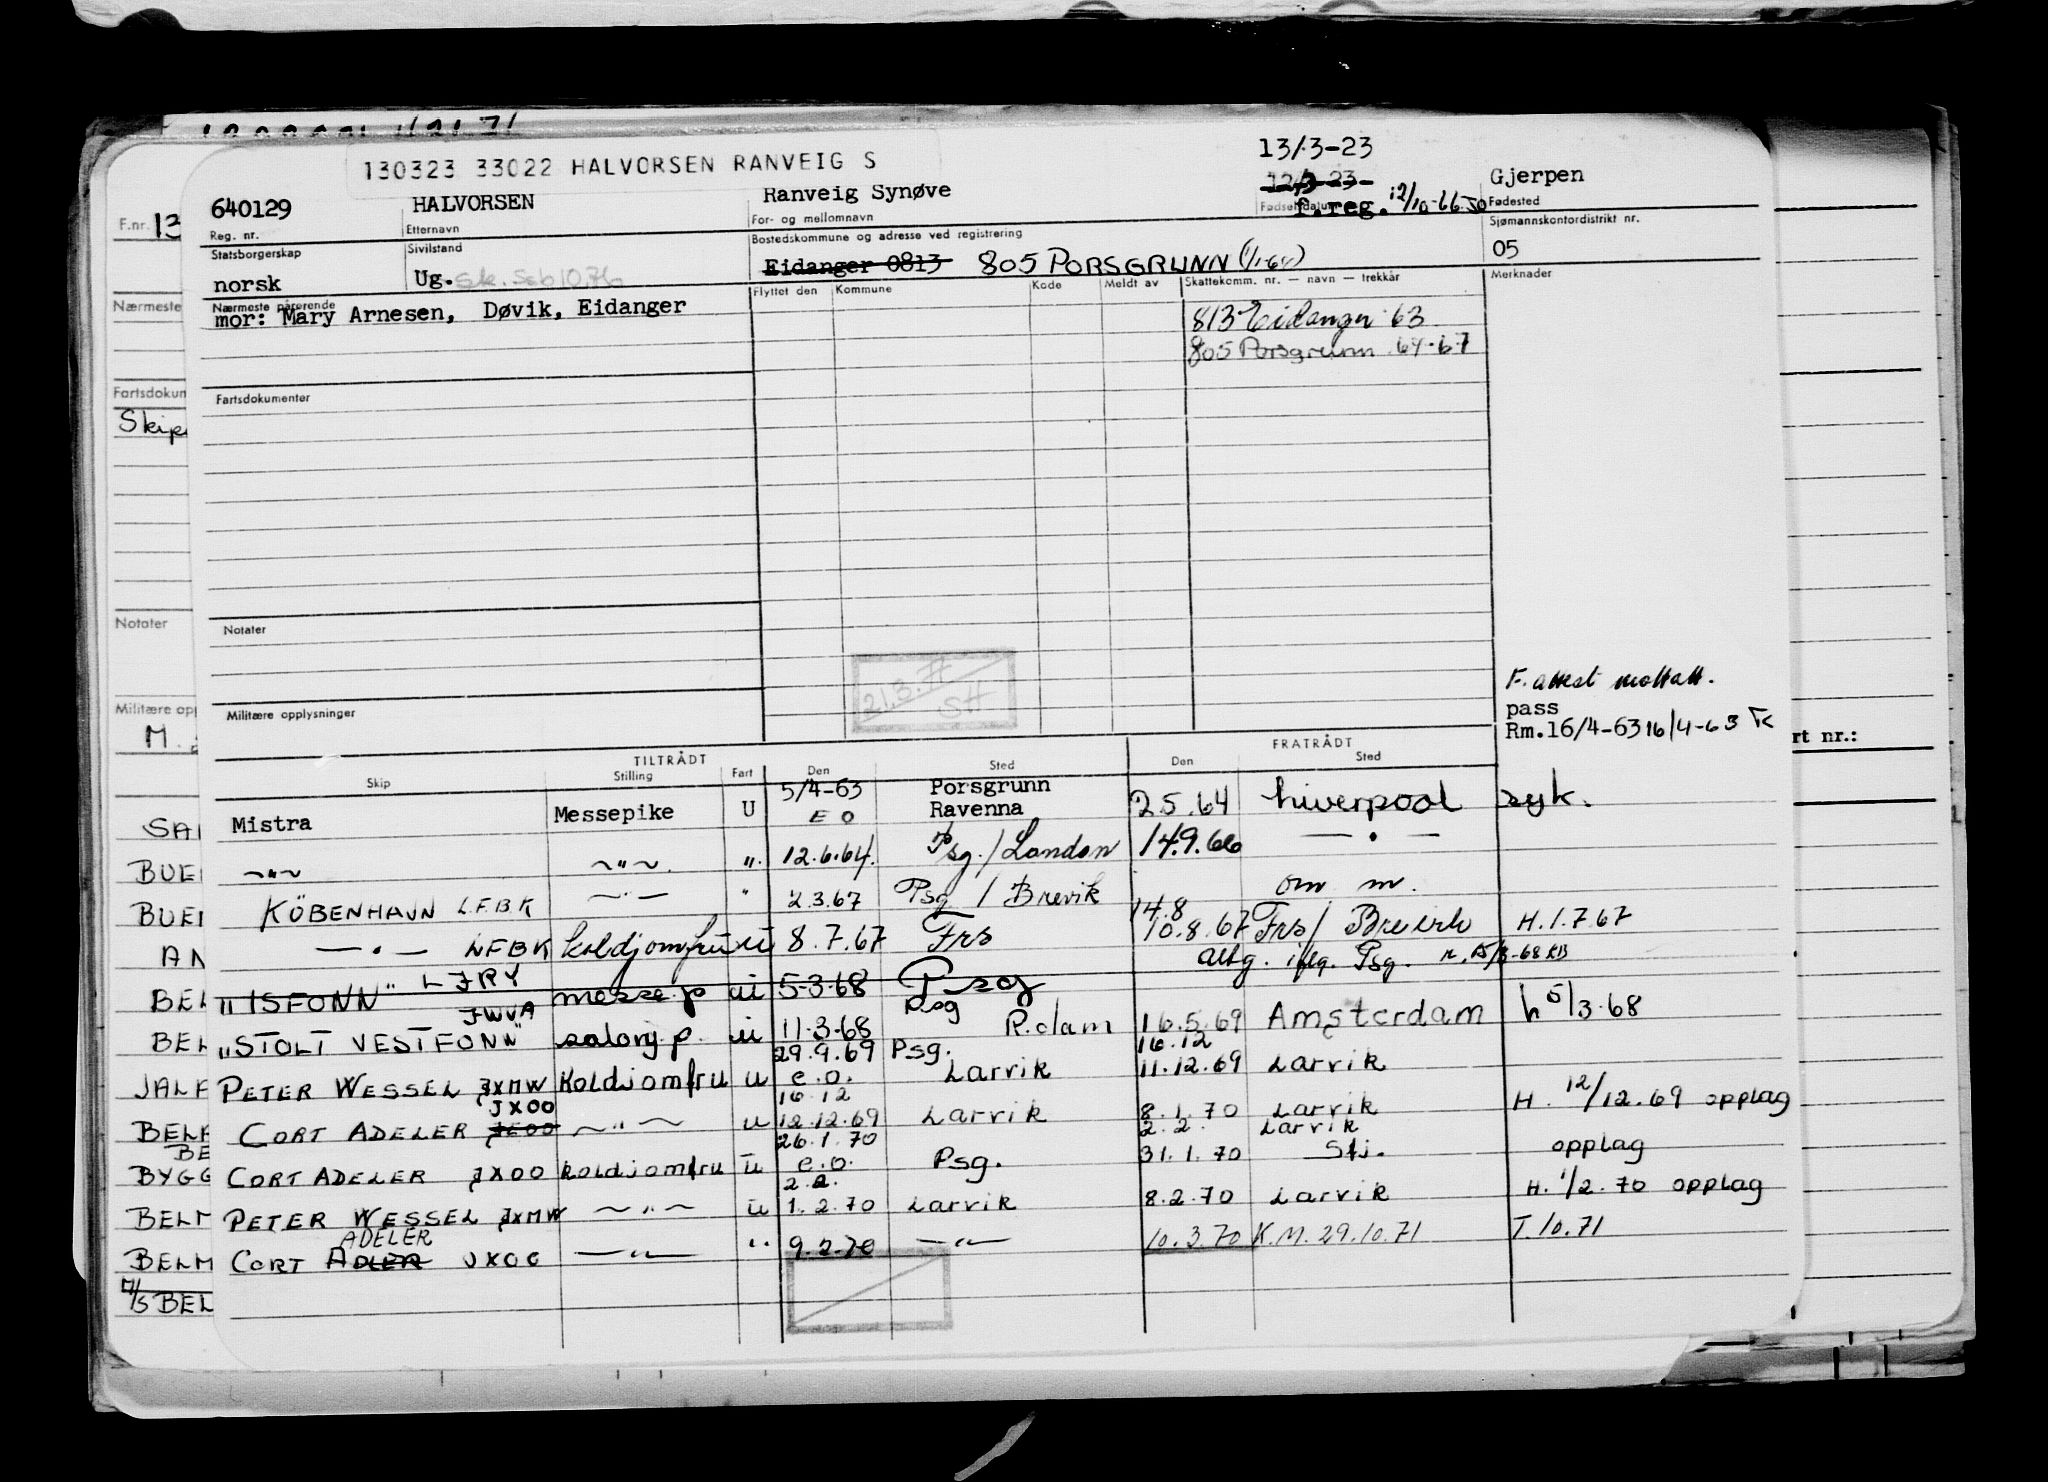 130323 33022 HALVORSEN RANVEIG S
13/3-23
640129 HALVORSEN Ranveig Synøve 12/3-23 Gjerpen
f.reg. 12/10-66
Reg. nr. Etternavn For- og mellomnavn Fødselsdatum Fødested
Statsborgerskap Sivilstand Bostedskommune og adresse ved registrering Sjømannskontordistrikt nr.
norsk Ug. Eidanger 0813 805 PORSGRUNN (1/1-64) 05
Nærmeste pårørende Flyttet den Kommune Kode Meldt av Skattekomm. nr. — navn — trekkår Merknader
mor: Mary Arnesen, Døvik, Eidanger
813 Eidanger 63
805 Porsgrunn 64-67
Fartsdokumenter
Notater
21.3.
SH
F. attest mottatt.
Militære opplysninger
pass
Rm.16/4-63 16/4-63
TILTRÅDT FRATRÅDT
Skip Stilling Fart Den Sted Den Sted
Mistra Messepike U 5/4-63 E O Porsgrunn Ravenna 2.5.64 Liverpool syk.
—"— —"— ". 12.6.64. Psg./London 14.9.66 — . —
KÖBENHAVN LFBK —"— " 2.3.67 Psg / Brevik om m.
14.8
— " — LFBK koldjomfru u 8.7.67 Frs 10.8.67 Frs/ Brevik H.1.7.67
Psg.
"ISFONN" LJRY messe.p ü 5-3-68 Psg
"STOLT VESTFONN" JWVA salongp. ü 11-3-68 Psg R.dam 16.5.69 Amsterdam h 5/3.68
PETER WESSEL JXMW Koldjomfru u 29.9.69 e.o. Psg. Larvik 16.12 11.12.69 Larvik
CORT ADELER JXOO JEOO —"— u 16.12 12.12.69 Larvik 8.1.70 Larvik H. 12/12.69 opplag
CORT ADELER JXOO koldjomfru u 26.1.70 e.o. Psg. 2.2. 31.1.70 Larvik opplag
PETER WESSEL JXMW —"— u 2.2. 1.2.70 Larvik 8.2.70 Larvik H. 1/2.70 opplag
CORT ADLER ADELER JXOO —"— " 9.2.70 —"— 10.3.70 K.M. 29.10.71 T.10.71
F.nr. 13
Nærmeste
Fartsdokun
Notater
Militære opp
M.
rt nr.:
SA
BUE
BUE
AN
BEL
BEL
JALF
BELF
BE
BYGG
BELM
BELM
M/S BEL